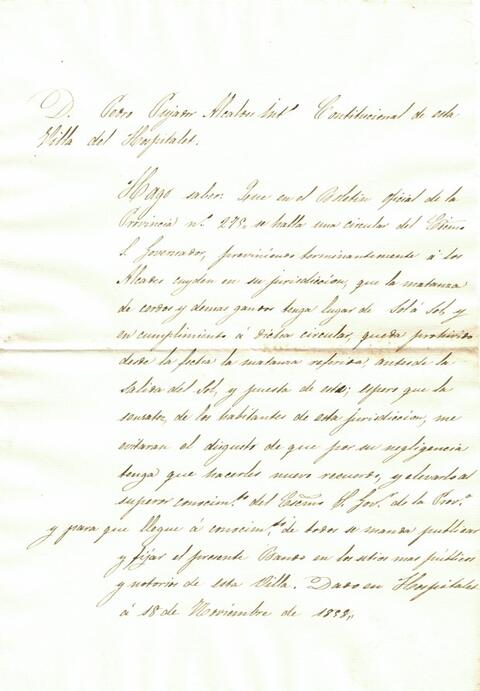 D. Pedro Pujador Alcalde Int.º Contitucional de esta
Villa del Hospitalet.
Hago saber: Que en el Boletin oficial de la
Provincia n.º 275, se halla una circular del Ecsmo
S. Governador, previniendo terminantemente á los
Alcades cuyden en su jurisdiccion, que la matanza
de cerdos y demas gandos tenga lugar de Sol á Sol, y
en cumplimiento á dicta circular, queda prohivido
desde la fectra la matanza referida, antes de la
salida del Sol, y puesta de este; espero que la
sensatez, de los habitantes de esta jurisdiccion, me
evitaran el disgusto de que por su negligencia
tenga que hacerles nuevo recuerdo, y elevarlo al
superor conocim.to del Escmo S. Gov.r de la Prov.a
y para que llegue á conocim.to de todos se manda publicar
y fijar el presente Bando en los sitios mas públicos
y notorios de esta Villa. Dado en Hospitalet
á 18 de Noviembre de